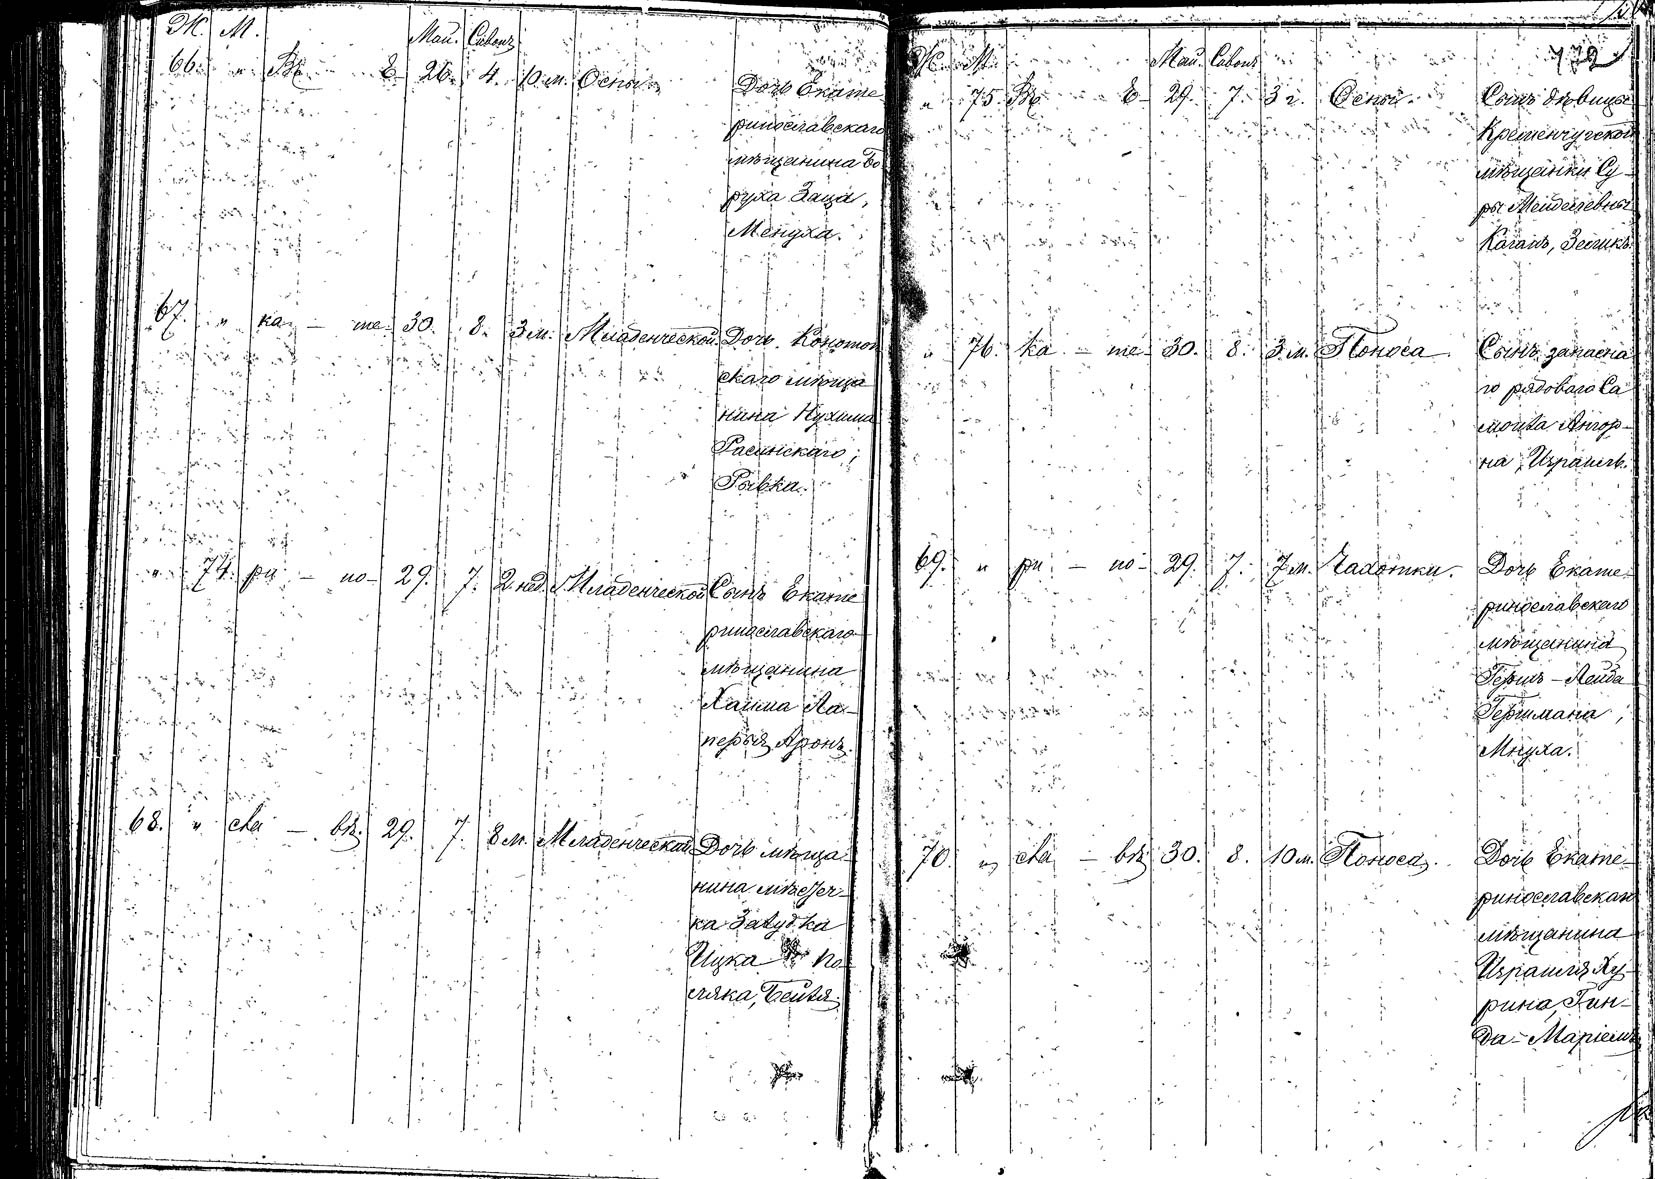 Ж. М. Май. Сивонъ
66. " Въ Е- 26. 4. 10 м. Оспы. Дочь Екате-
ринославскаго
мѣщанина Бо-
руха Заца,
Менуха.
67. " ка - те- 30. 8. 3 м. Младенческой. Дочь Конотоп-
скаго мѣща-
нина Нухима
Расинскаго,
Рывка.
" 74. ри - но- 29. 7. 2 нед. Младенческой Сынъ Екате-
ринославскаго
мѣщанина
Хаима Ла-
перья, Аронъ.
68. " сла - въ. 29. 7. 8 м. Младенческой Дочь мѣща-
нина мѣстеч-
ка
Ицка По-
ляка, Бейля.
172
Ж. М. Май. Сивонъ
" 75 Въ Е- 29. 7. 3 г. Оспы. Сынъ дѣвицы
Кременчугской
мѣщанки Су-
ры Менделевны
Каганъ, Зеликъ.
" 76. ка - те- 30. 8. 3 м. Поноса. Сынъ запасна-
го рядоваго Са-
моила Ангор-
на, Израиль.
69. " ри - но- 29. 7. 7 м. Чахотки. Дочь Екате-
ринославскаго
мѣщанина
Гершъ-Лейба
Гершмана,
Мнуха.
70. " сла - въ 30. 8. 10 м. Поноса. Дочь Екате-
ринославскаго
мѣщанина
Израиля Ху-
рина, Гин-
да-Маріемъ.